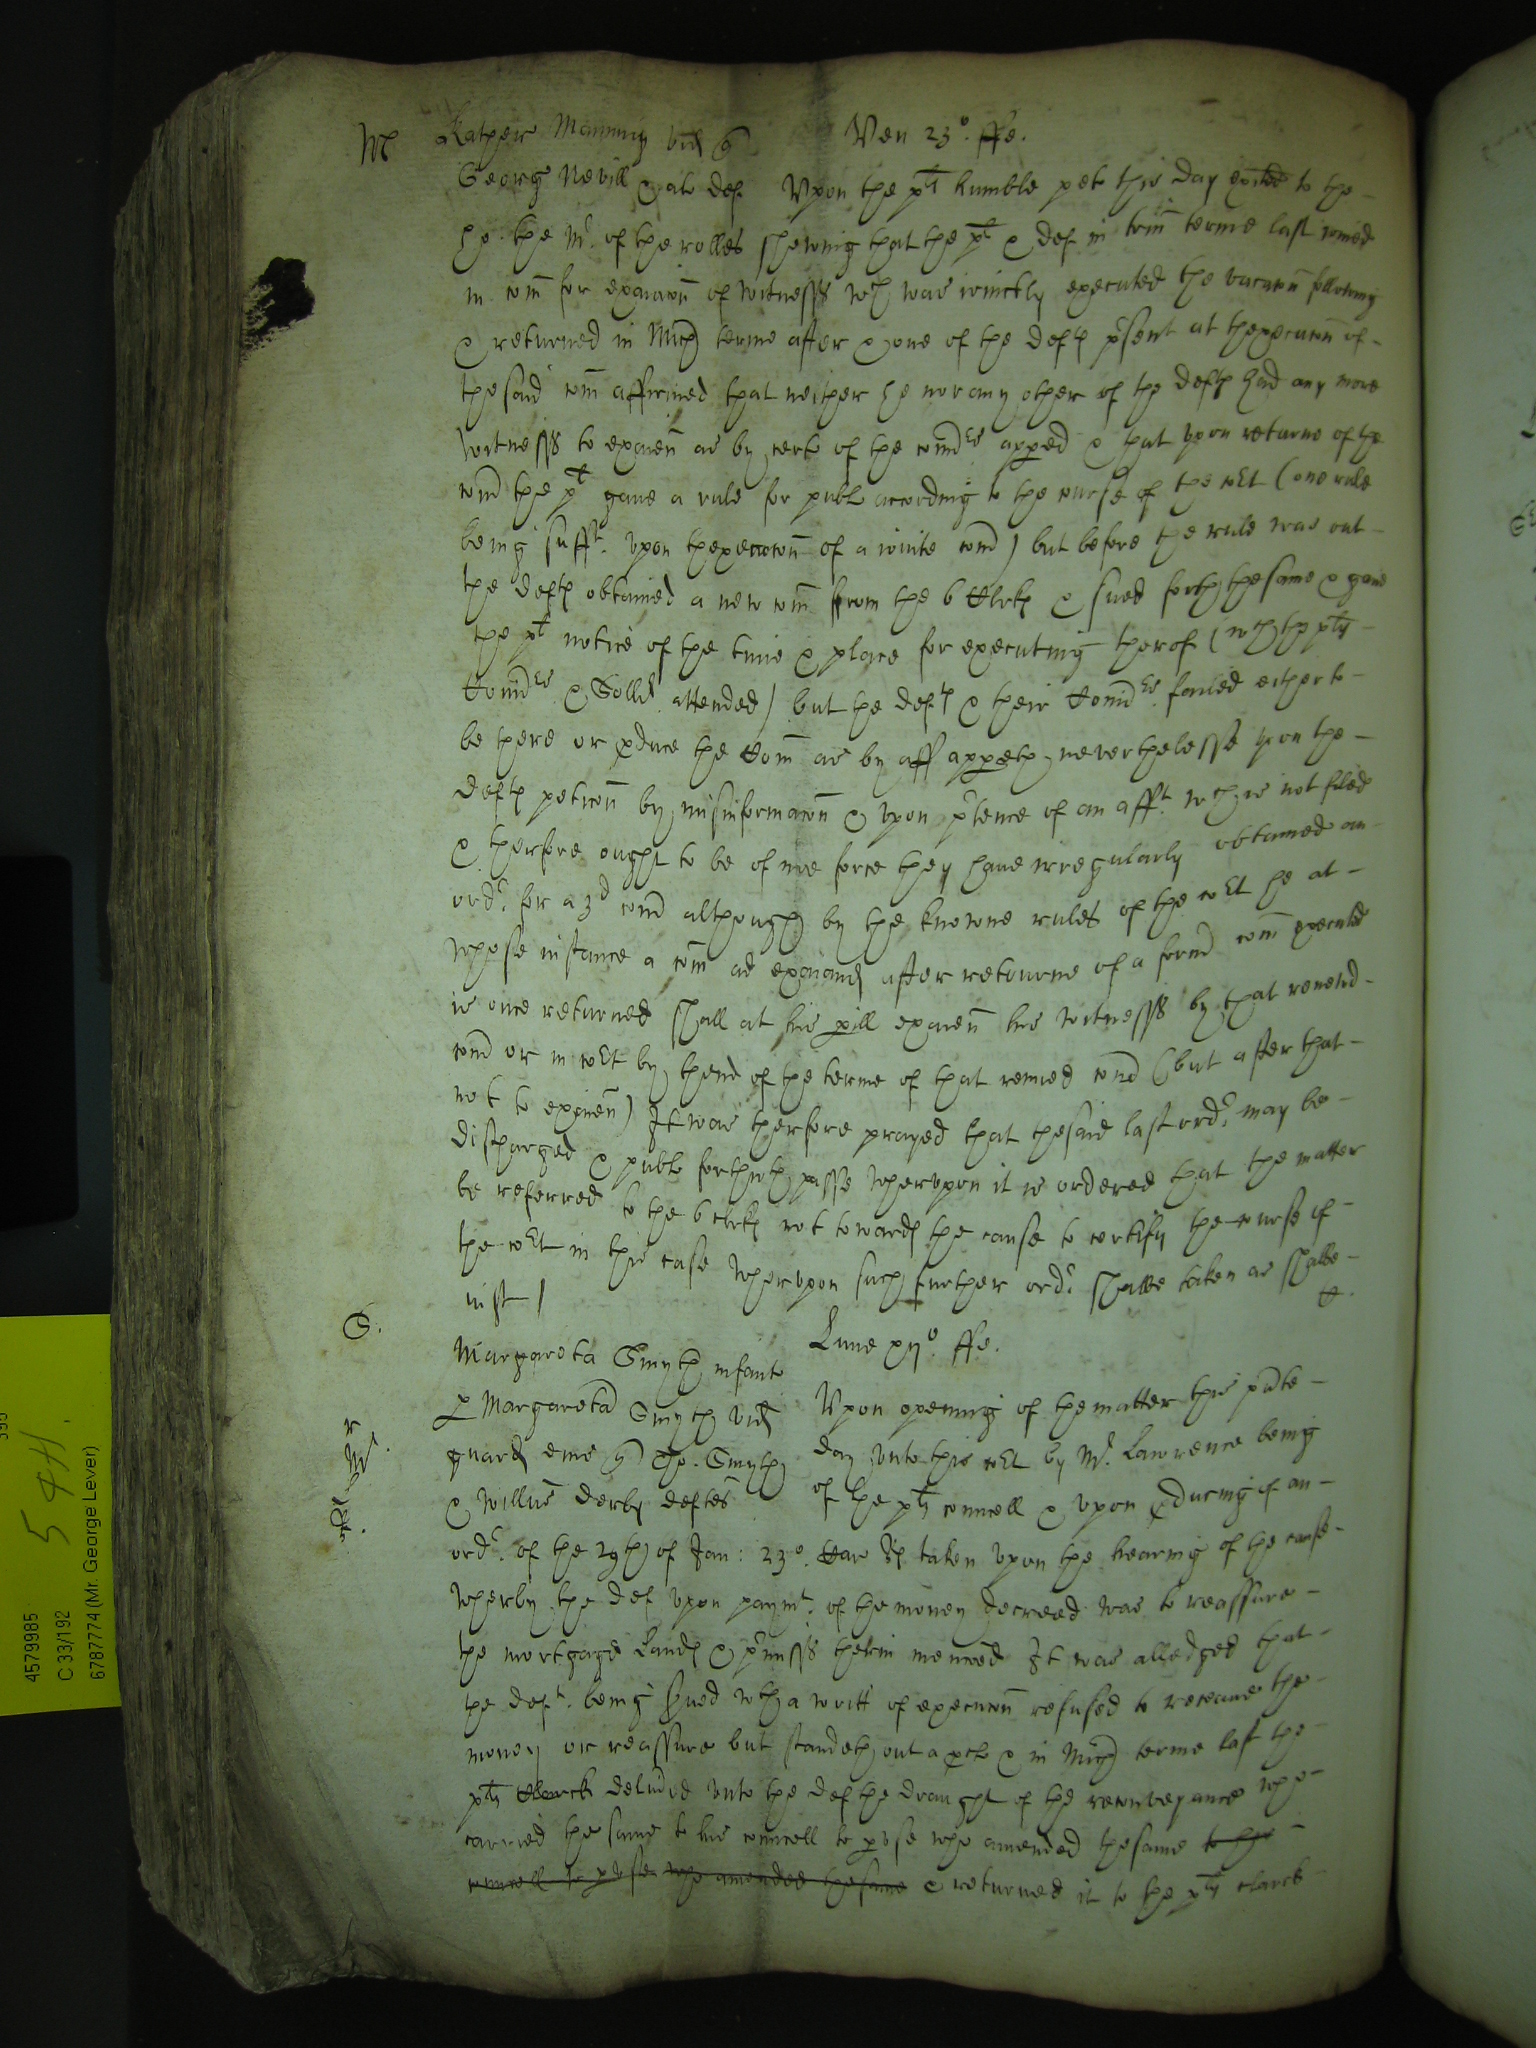 M Kather Manning vid q
Ven 23°. ffe.
George Nevill & al def Upon the plt humble peto this day to the
ho. the Mr. of the rolles shewing that the plt & def in terme last ioined
in com for exaiacon of witnesses wch was ioinctly executed the vacacon following
& returned in Mich terme after & one of the defts psent at thexecucon of
the said com affirmed that neither he nor any other of the defts had any more
witnesses to exaien as by certo of the comrs apped & that upon returne of the
com the plt gave a rule for publ according to the course of the cot (one rule
being sufft. upon thexecucon of a iointe com) but before the rule was out
the defts obtained a new com from the 6 Clrks & sued forth the same & gave
the plt notice of the time & place for executing therof (wch the plts
Comrs & Sollr. attended) but the defts & their Comrs. failed either to
be there or pduce the Com as by aff appeth, neverthelesse upon the
defts peticon by misinformacon & upon ptence of an afft. wch is not filed
& therfore ought to be of noe force they have irregularly obtained an
ordr. for a 3d com although by the knowne rules of the cot he at
whose instance a com ad exaiand after retourne of a formr com executed
is once returned shall at his pill exaien his witnesses by that renewd
com or in cot by thend of the terme of that renued com (but after that
not to exaien) It was therfore prayed that the said last ordr. may be
discharged & publ forthwth passe Wherupon it is ordered that the matter
be referred to the 6 clrks not towards the cause to certify the course of
the cot in this case wherupon such further ordr. shalbe taken as shalbe
iust / C.
S.
Lune xii°. ffe.
Margareta Smyth infans
p Margareta Smyth vid
guard eius q Tho. Smyth
& Willus Derby deftes
Upon opening of the matter this pnte
day unto this cot by Mr. Lawrence being
of the plts councell & upon pducing of an
ordr. of the 29th of Jan: 23°. Car Rs taken upon the hearing of the cause
wherby the def upon paymt. of the money decreed was to reassure
the mortgage Lands & pmisses therin menconed It was alledged that
the deft. being served wth a writt of execucon refused to receave the
money or reassure but standeth out a pclo & in Mich terme last the
plts Clerck delivd unto the def the draught of the reconveyance who
carried the same to his councell to pvse who amended the same to his
councell to pvse who amended the same & returned it to the plts clarck
5 4H.
4579985
C 33/192
6787774 (Mr. George Lever)